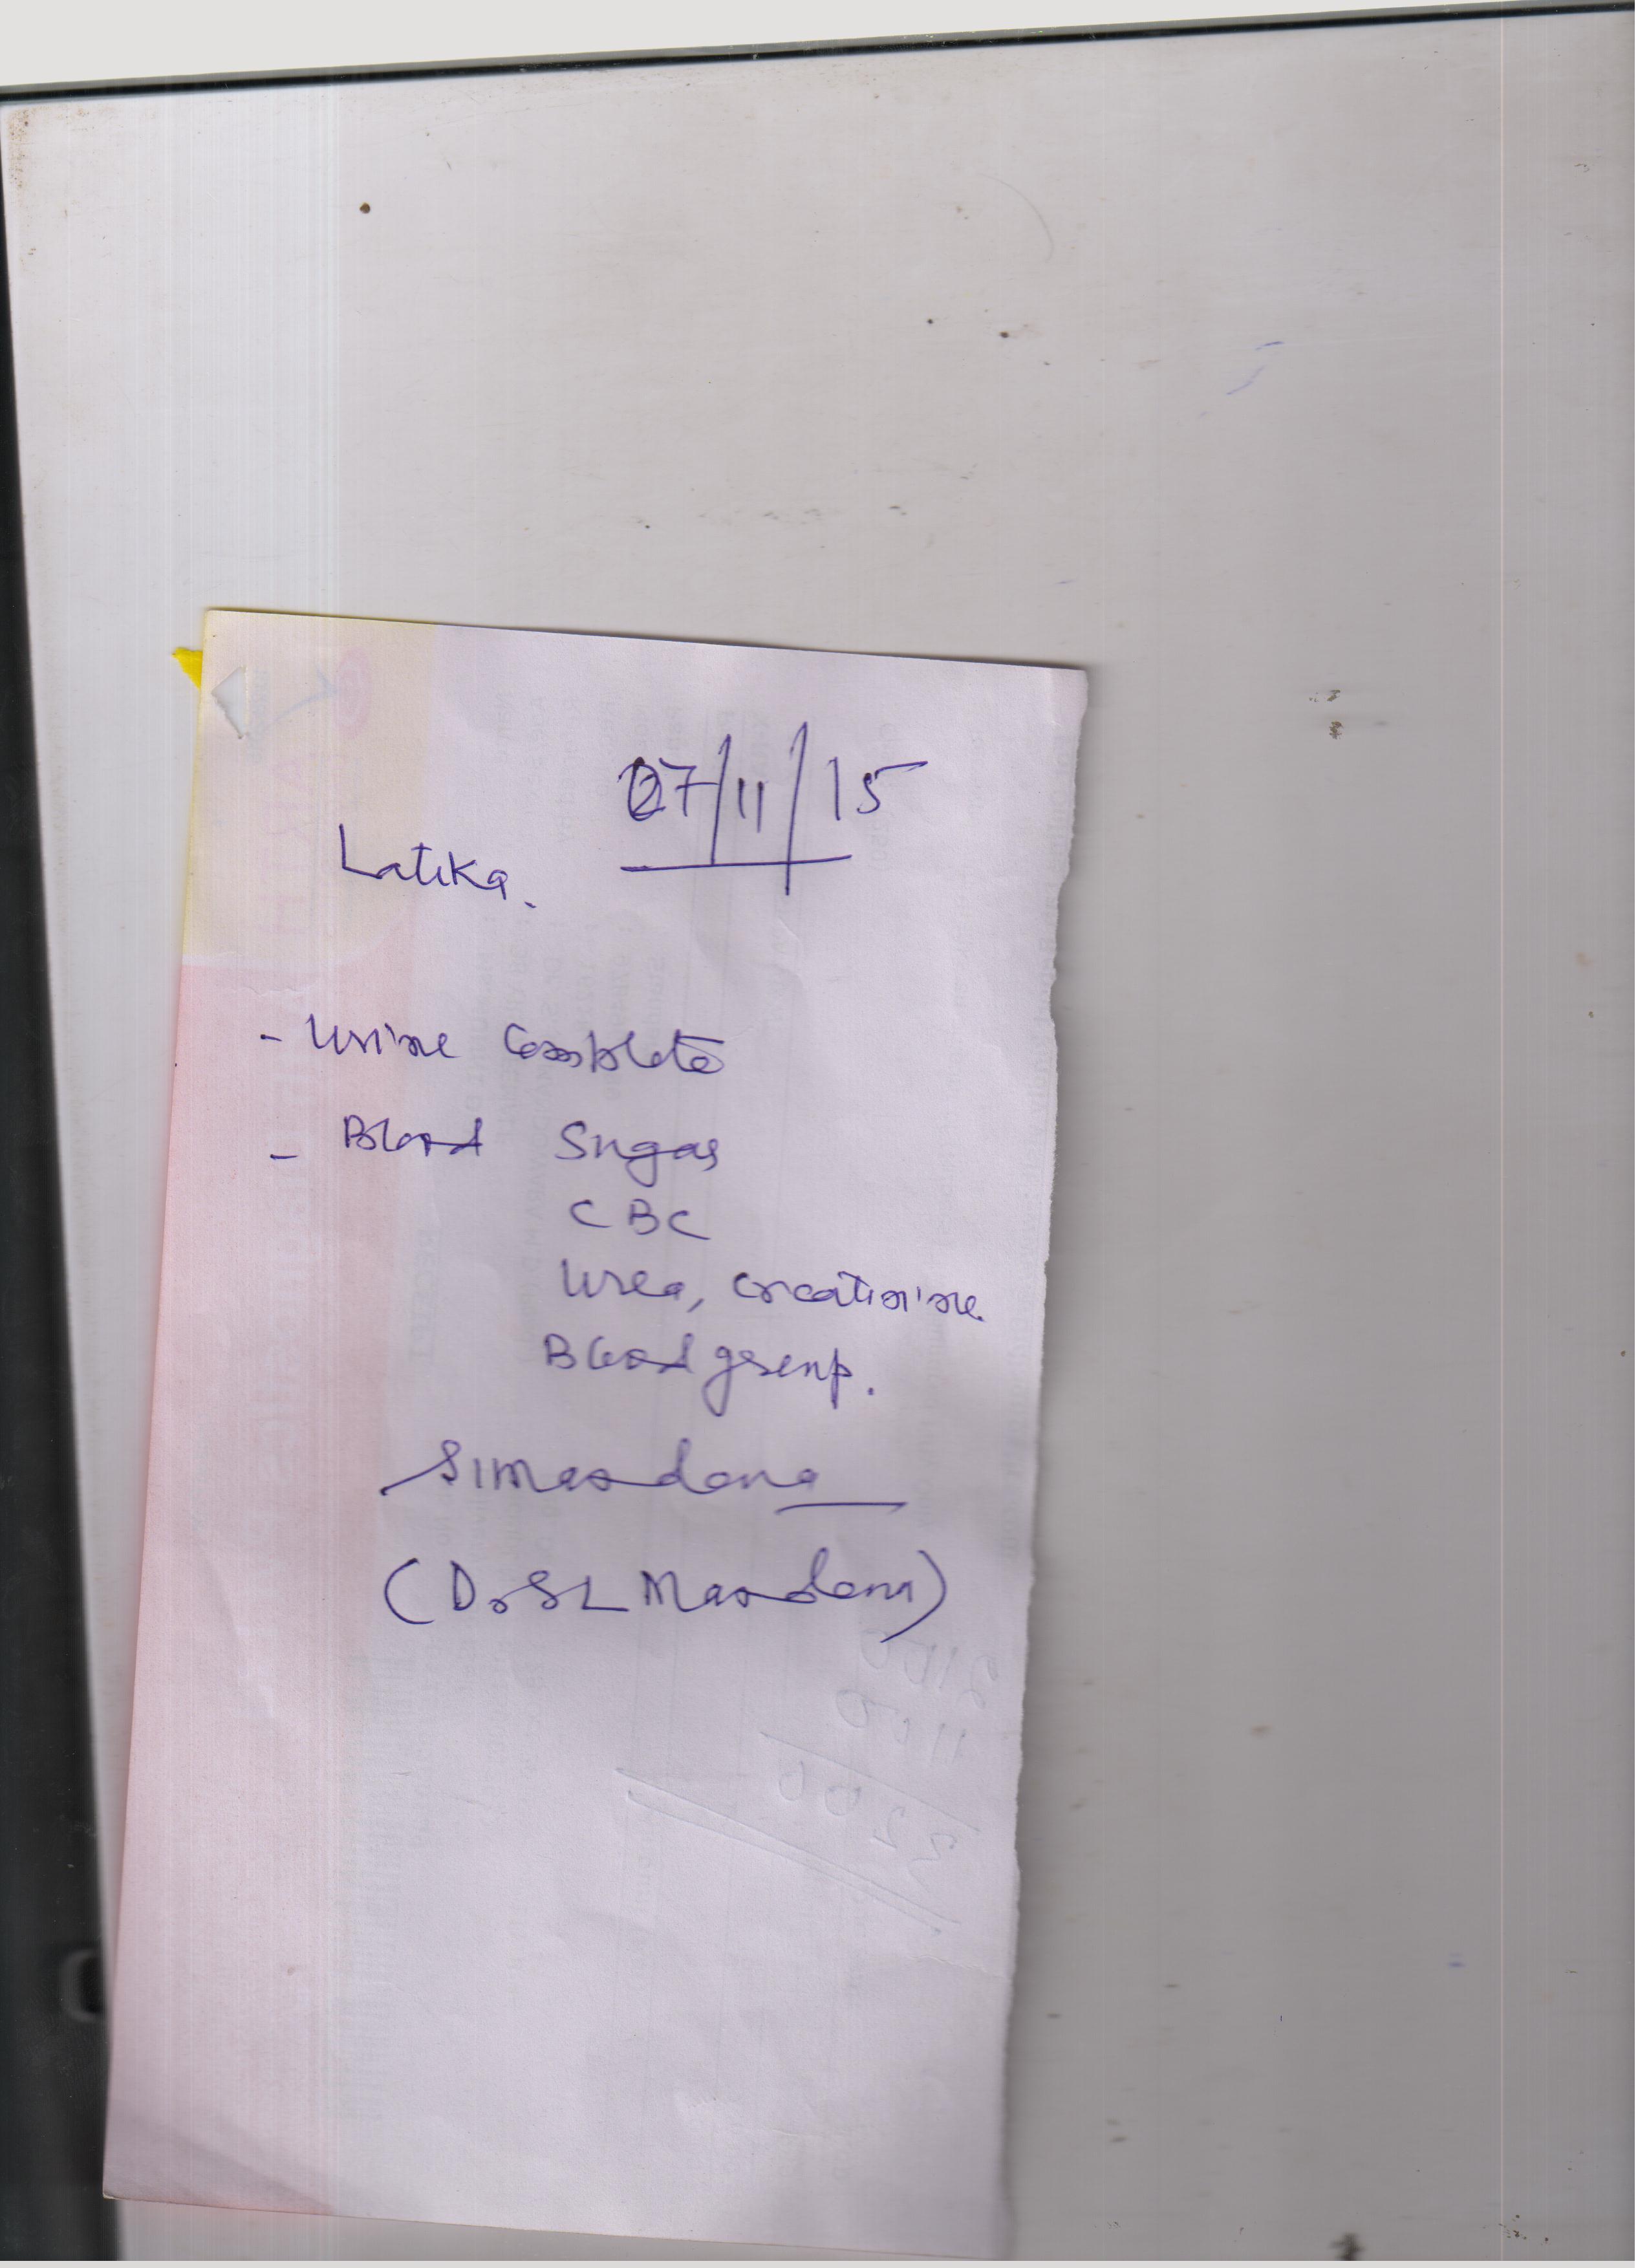 07/11/15
Latika.
- Urine Complete
- Blood Sugar
CBC
Urea, creatinine.
Blood group.
(Dr SL Mardana)